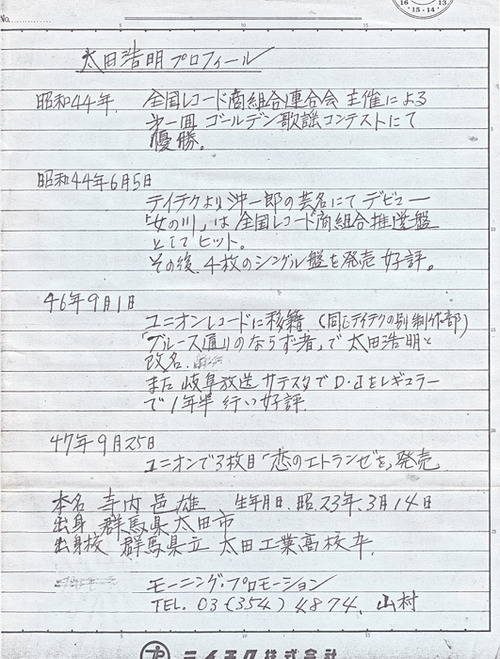 No.
16 13
15・14
太田浩明プロフィール
昭和44年. 全国レコード商組合連合会 主催による
第一回 ゴールデン歌謡コンテストにて
優勝。
昭和44年6月5日
テイチクより沖一郎の芸名にて デビュー
「女の川」は 全国レコード商組合推奨盤
としてヒット。
その後 4枚のシングル盤を発売 好評。
46年9月1日
ユニオンレコードに移籍.(同じテイチクの別制作部)
「ブルース通りのならず者」で 太田浩明と
改名.
また 岐阜放送 サテスタで D・Jをレギュラー
で1年半 行い好評.
47年9月25日
ユニオンで3枚目「恋のエトランゼ」を,発売
本名 寺内邑雄 生年月日. 昭.23年.3月14日
出身 群馬県太田市
出身校 群馬県立 太田工業高校卒.
モーニング・プロモーション
TEL. 03 (354) 4874. 山村
テイチク株式会社